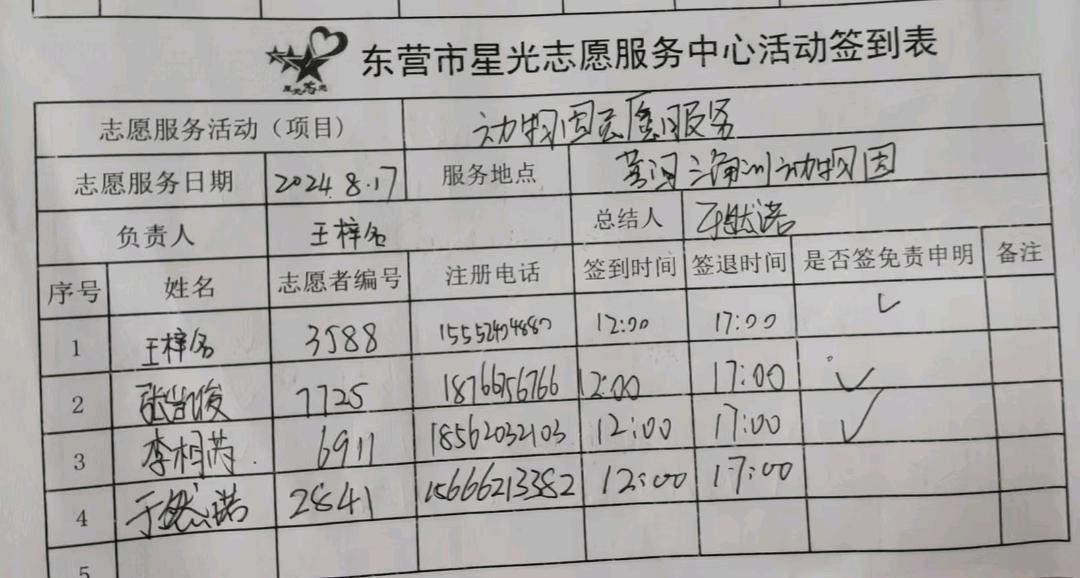 东营市星光志愿服务中心活动签到表
志愿服务活动（项目） 动物园志愿服务
志愿服务日期 2024.8.17 服务地点 黄河三角洲动物园
负责人 王梓名 总结人 于然诺
序号 姓名 志愿者编号 注册电话 签到时间 签退时间 是否签免责申明 备注
1 王梓名 3588 15552404880 12:00 17:00 ✓
2 7725 18766756766 12:00 17:00 ✓
3 李相芮 6911 18562032103 12:00 17:00 ✓
4 于然诺 2841 15666213382 12:00 17:00
5